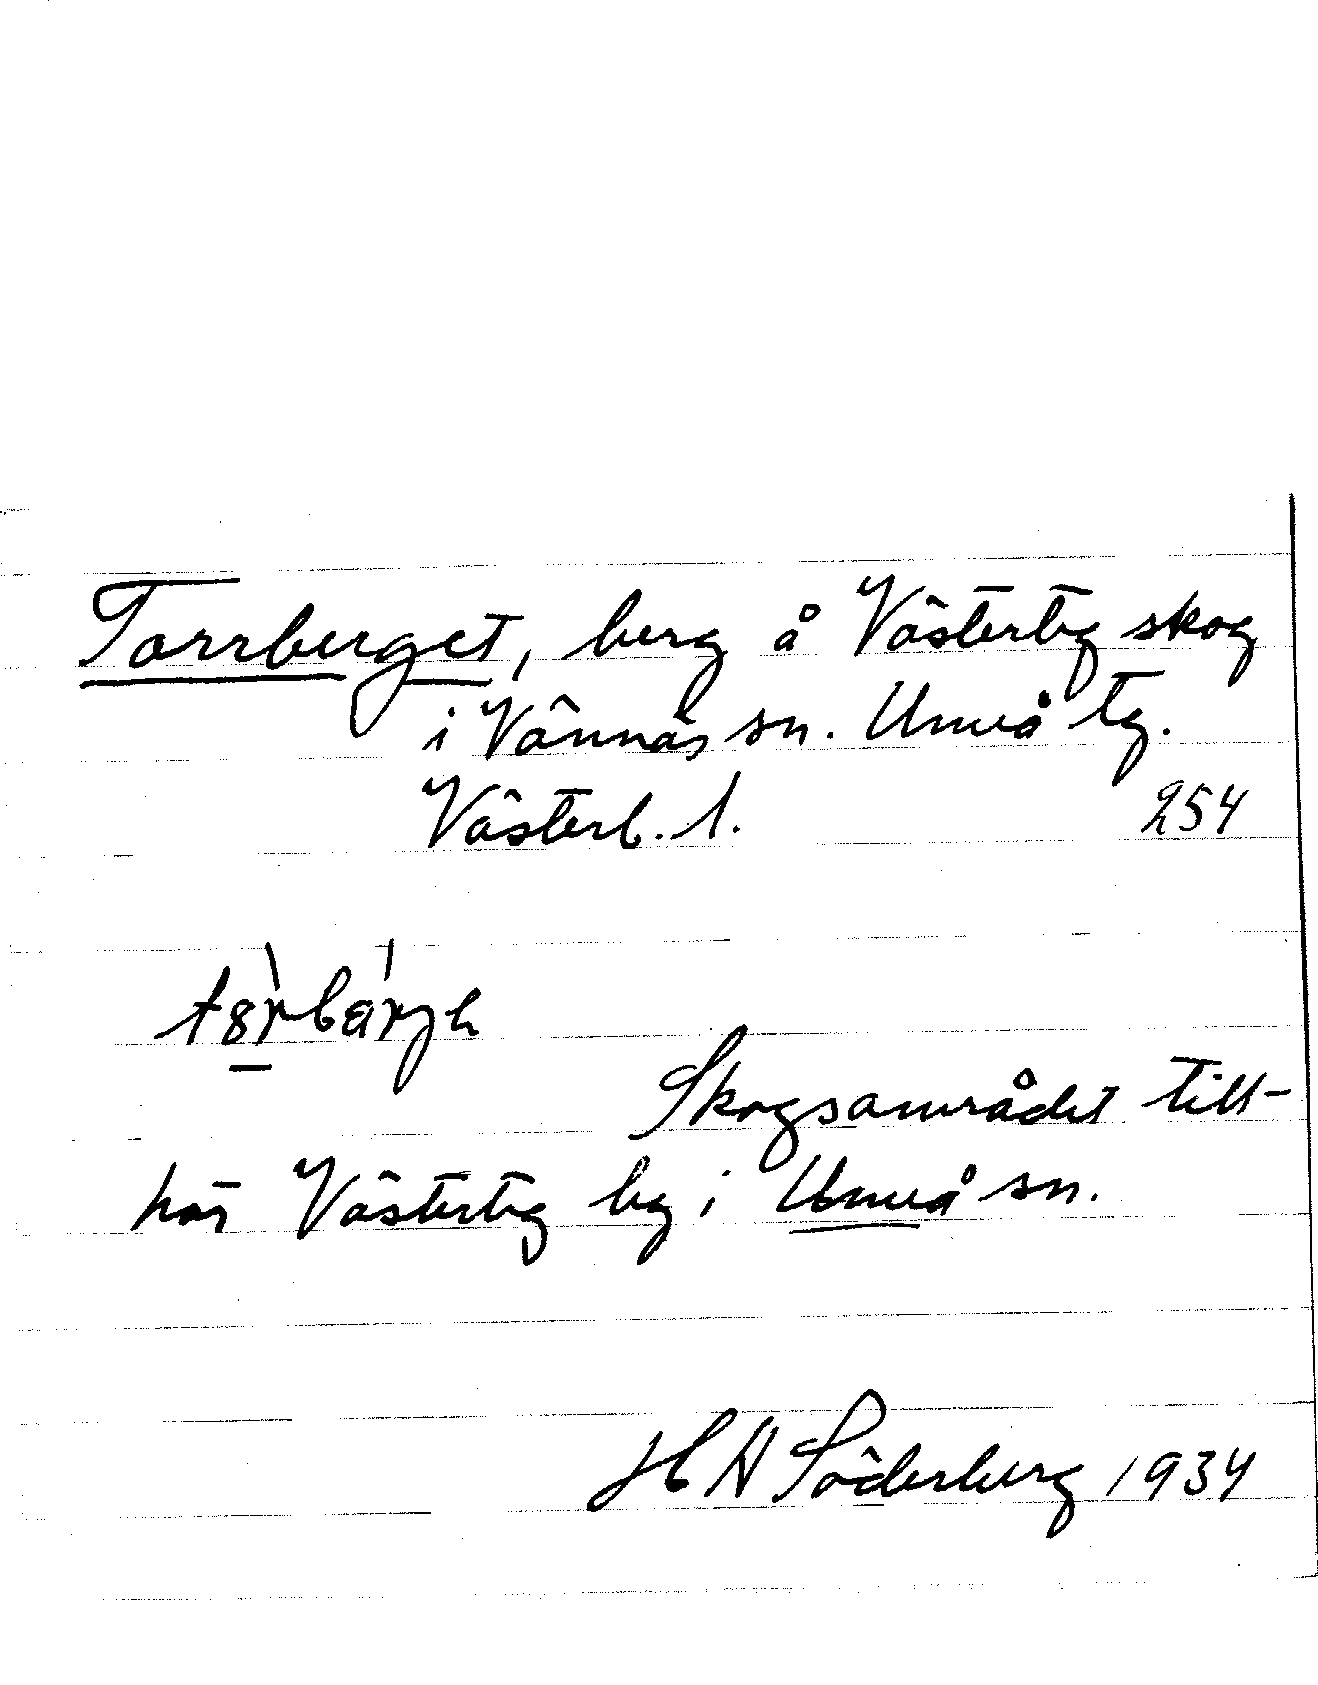 Torrberget, berg å Västerteg skog
i Vännäs sn. Umeå tg.
Västerb. l. 254
Skogsområdet till-
hör Västerteg by i Umeå sn.
H A Söderberg 1934